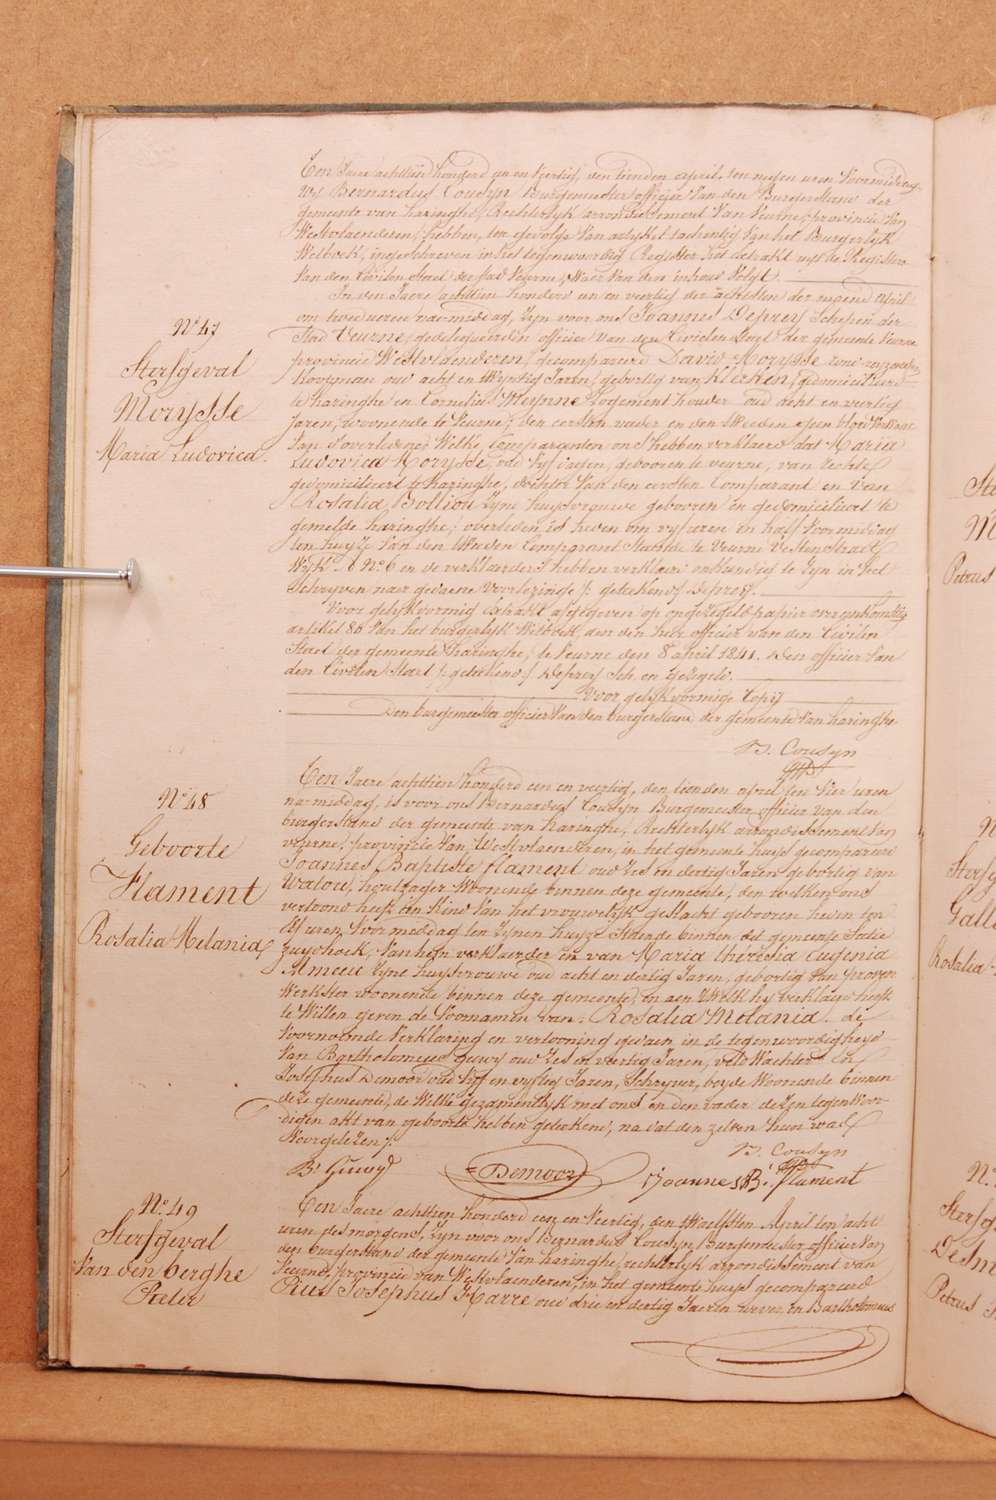 N.º 47
Sterfgeval
Morysse
Maria Ludovica.
Een Jaere achttien honderd en en Veertig, den tienden april, ten negen uren Voormiddag
Wy Bernardus Cousyn Burgemeester officier Van den Burgerstand der
gemeente van haringhe, Rechterlyk arrondissement Van Veurne, provincie Van
Westvlaenderen, hebben, ten gevolge Van artykel tachentig Van het Burgerlyk
Wetboek, ingeschreven in het tegenwoordig Register het extrakt uyt de Registers
Van den Civilen Staet der stad Veurne, Waer Van den inhoud Volgt.
In den Jaere achttien honderd en en veertig den achtsten der maend april
om twee uren na-middag, Zyn voor ons Joannes Deprey Schepen der
Stad Veurne, gedelegueerden officier van den Civielen Staet der gemeente Veurne
provincie Westvlaenderen, gecompareerd David Morysse
Koopman oud acht en twyntig Jaren, geboortig van Klerken, gedomicilieerd
te haringhe en Cornelius Meynne Logement houder oud acht en veertig
Jaren, woonende te Veurne, den eersten vader en den tweeden geen bloedverwant
Van d'overledene, Welke Comparanten ons hebben verklaerd dat Maria
Ludovica Morysse, oud vyf dagen, gebooren te veurne, van rechts
gedomicilieert te haringhe, dochter Van den eersten Comparant en Van
Rosalia Bolliou Zyne huysvrouwe gebooren en gedomicilieert te
gemelde haringhe, overleden is heden om vyf uren en half Voormiddag
ten huyze Van den tweeden Comparant Staende te Veurne Vestenstraet
Wyk 6 Nº 6 en de verklaerders hebben verklaerd onkundig te Zyn in het
Schryven naer gedaene Voorlezinge /: geteekend Deprey.
Voor gelykvormig extrakt afgegeven op ongezegeld papier overeenkomstig
artikel 80 Van het burgerlyk Wetboek, aen den heer officier van den Civilen
Staet der gemeente haringhe, te Veurne den 8 april 1841. Den officier Van
den Civilen Staet /: geteekend / Deprey Sch. en gezegeld.
Voor gelykvormige Copy
Den burgemeester officier Van den burgerstand der gemeente Van haringhe
B. Cousyn
N.º 48
Geboorte
Flament
Rosalia Melania
Een Jaere achttien honderd een en veertig, den tienden april ten vier uren
na-middag, is voor ons Bernardus Cousyn Burgemeester officier van den
burgerstand der gemeente van haringhe, Rechterlyk arrondissement Van
veurne, provincie Van Westvlaenderen, in het gemeente huys gecompareerd
Joannes Baptiste flament oud Zes en dertig Jaren geboortig van
Watou, houtzager Woonende binnen deze gemeente, den welken ons
vertoond heeft een Kind Van het vrouwelyk geslacht gebooren heden ten
Elf uren Voormiddag ten Zynen huyze Staende binnen dit gemeente Sectie
Zuydhoek, Van hem verklaerder en van Maria theresia Eugenia
Almeeu Zyne huysvrouwe oud acht en dertig Jaren, geboortig Van proven
Werkster woonende binnen deze gemeente, en aen Welk hy verklaerd heeft
te Willen geven de Voornamen van: Rosalia Melania. de
Voornoemde Verklaring en vertooning gedaen in de tegenwoordigheyd
Van Bartholomeus Geuwy oud Zes en veertig Jaren, veld Wachter en
Josephus Demoor oud Vyf en vyftig Jaren, Schryver, beyde Woonende binnen
deze gemeente, de Welke gezamentlyk met ons en den vader dezen tegenwoor-
digen akt van geboorte hebben geteekend, na dat den zelven hun was
Voorgelezen /:
B. Cousyn
B. Geuwy Demoor Joannes B. flament
N.º 49
Sterfgeval
Van den berghe
Peeter
Een Jaere achttien honderd een en Veertig, den twaelfsten April ten acht
uren des morgens, Zyn voor ons Bernardus Cousyn, burgemeester officier Van
den burgerstand der gemeente Van haringhe, rechterlyk arrondissement van
Veurne, provincie van Westvlaenderen, in het gemeente huys gecompareerd
Pius Josephus Harre oud drie en dertig Jaeren wever, en Bartholomeus
Petrus
Rosalia
Petrus